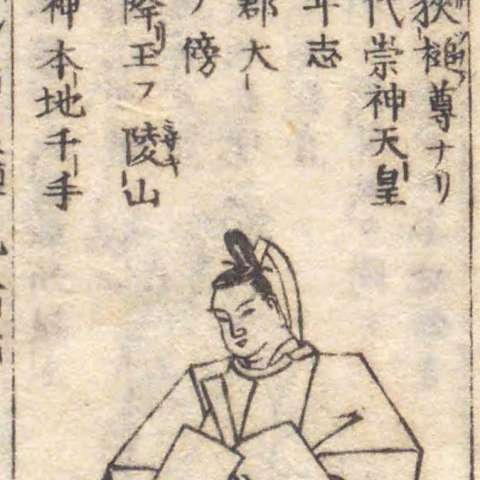 狭槌尊ナリ
代崇神天皇
年志
郡大
ノ傍
降リ王フ陵山
神本地千手